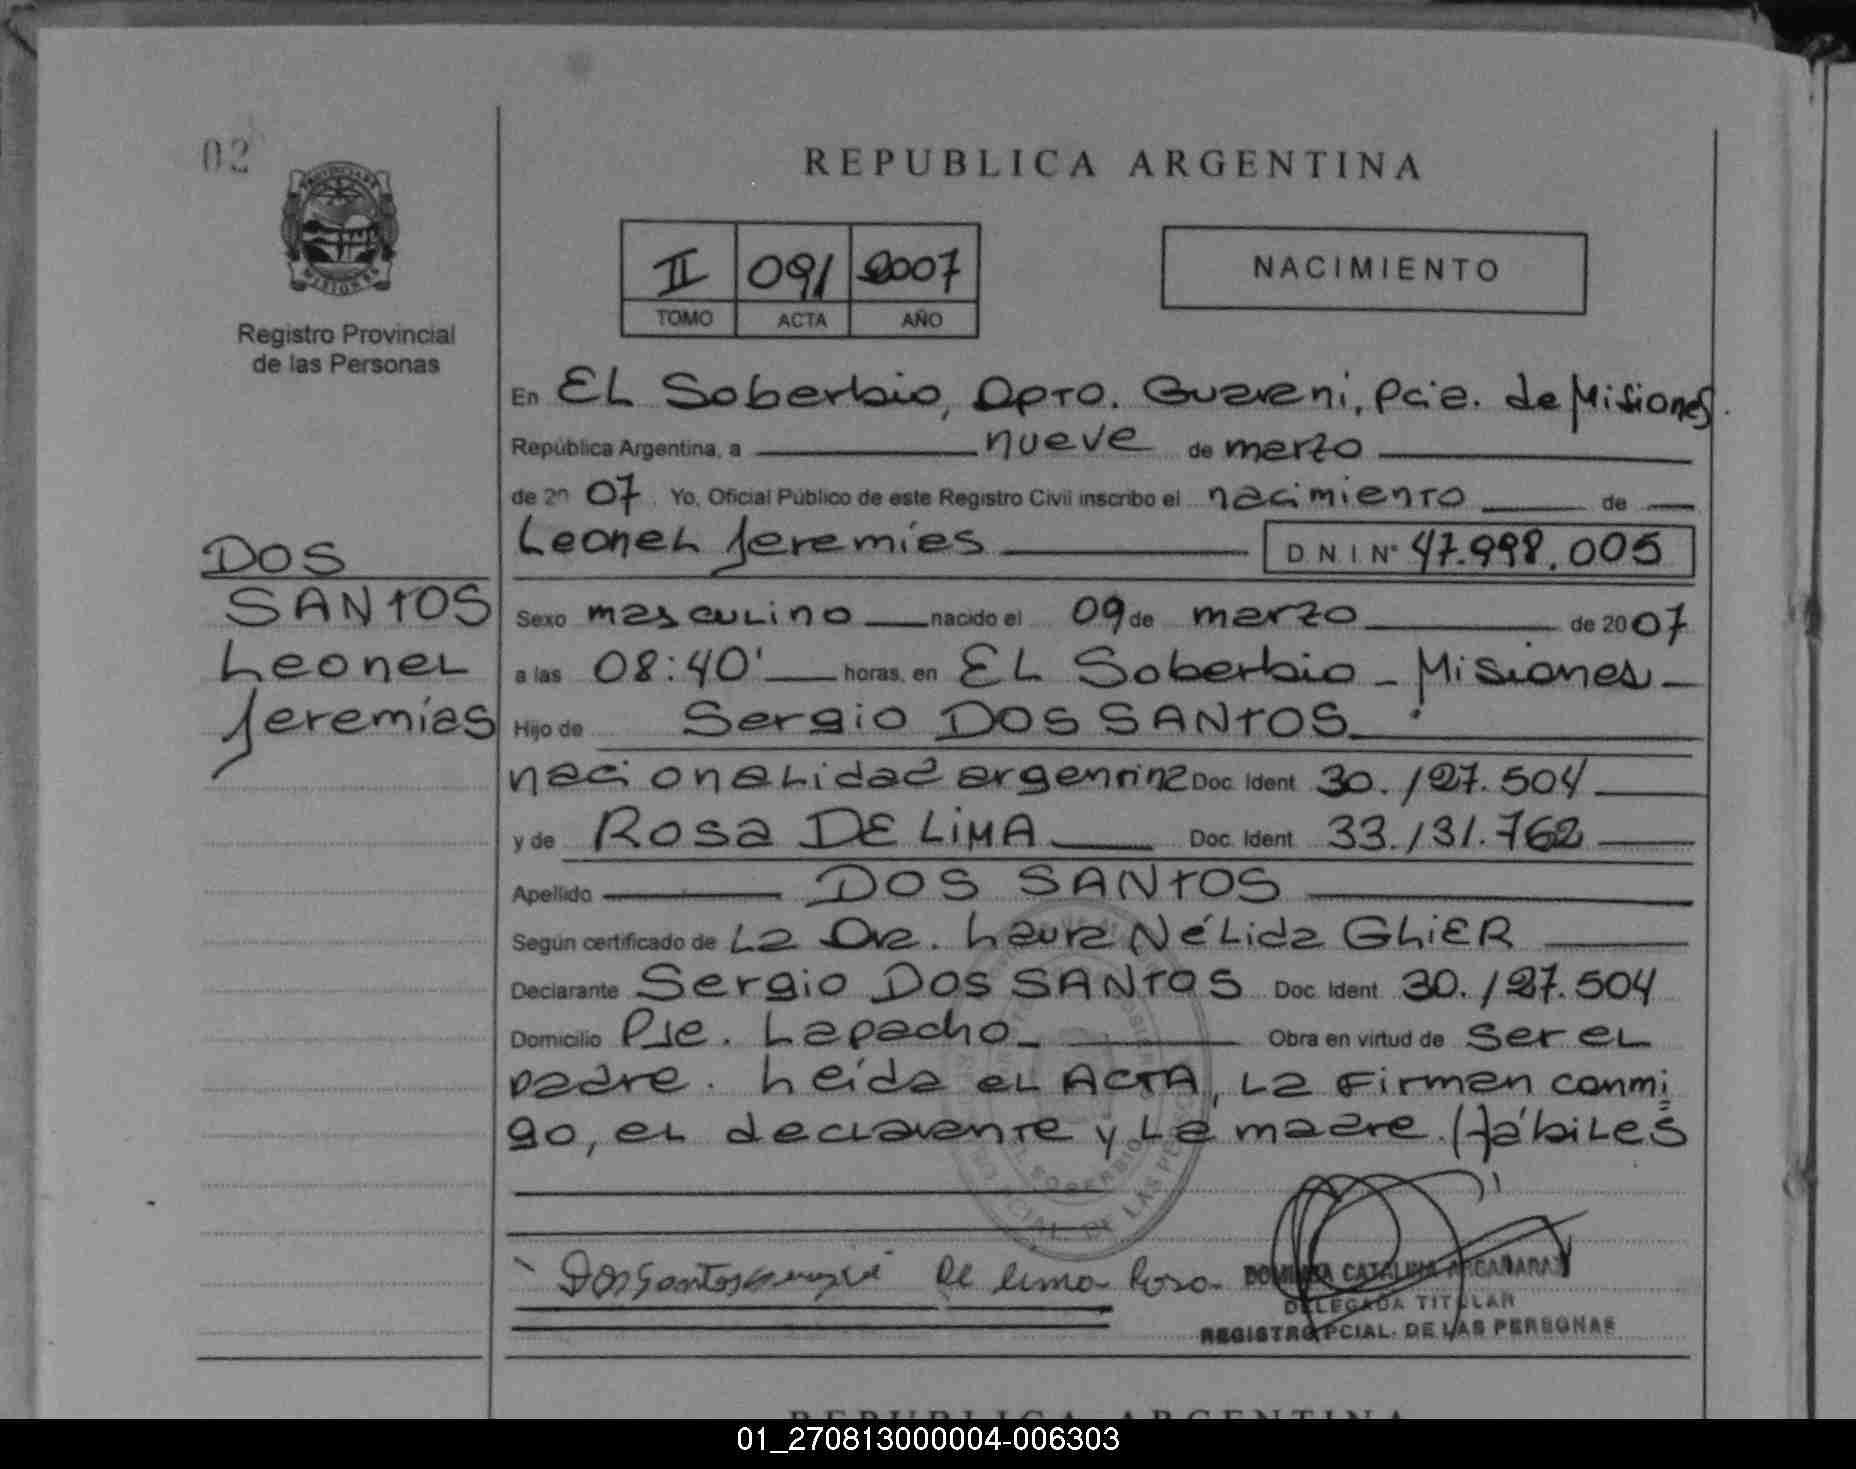 02
REPUBLICA ARGENTINA
II 091 2007
TOMO ACTA AÑO
NACIMIENTO
Registro Provincial
de las Personas
DOS
SANTOS
Leonel
Jeremías
En EL Soberbio, Dpto. Guarani, Pcia. de Misiones.
República Argentina, a nueve de marzo
de 20 07 Yo, Oficial Público de este Registro Civil inscribo el nacimiento de
Leonel Jeremías D N I N° 47.998.005
Sexo masculino nacido el 09 de marzo de 2007
a las 08:40' horas, en EL Soberbio - Misiones -
Hijo de Sergio DOS SANTOS
nacionalidad argentina Doc. Ident. 30.127.504
y de Rosa DE LIMA Doc. Ident. 33.131.762
Apellido DOS SANTOS
Según certificado de La Dra. Laura Nélida GLIER
Declarante Sergio DOS SANTOS Doc. Ident. 30.127.504
Domicilio Pje. Lapacho - Obra en virtud de ser el
padre. Leída el ACTA, La Firman conmi
go, el declarante y La madre. Hábiles
Dos Santos De lima Rosa
CATALINA
DELEGADA TITULAR
REGISTRO PCIAL. DE LAS PERSONAS
REPUBLICA ARGENTINA
01_270813000004-006303